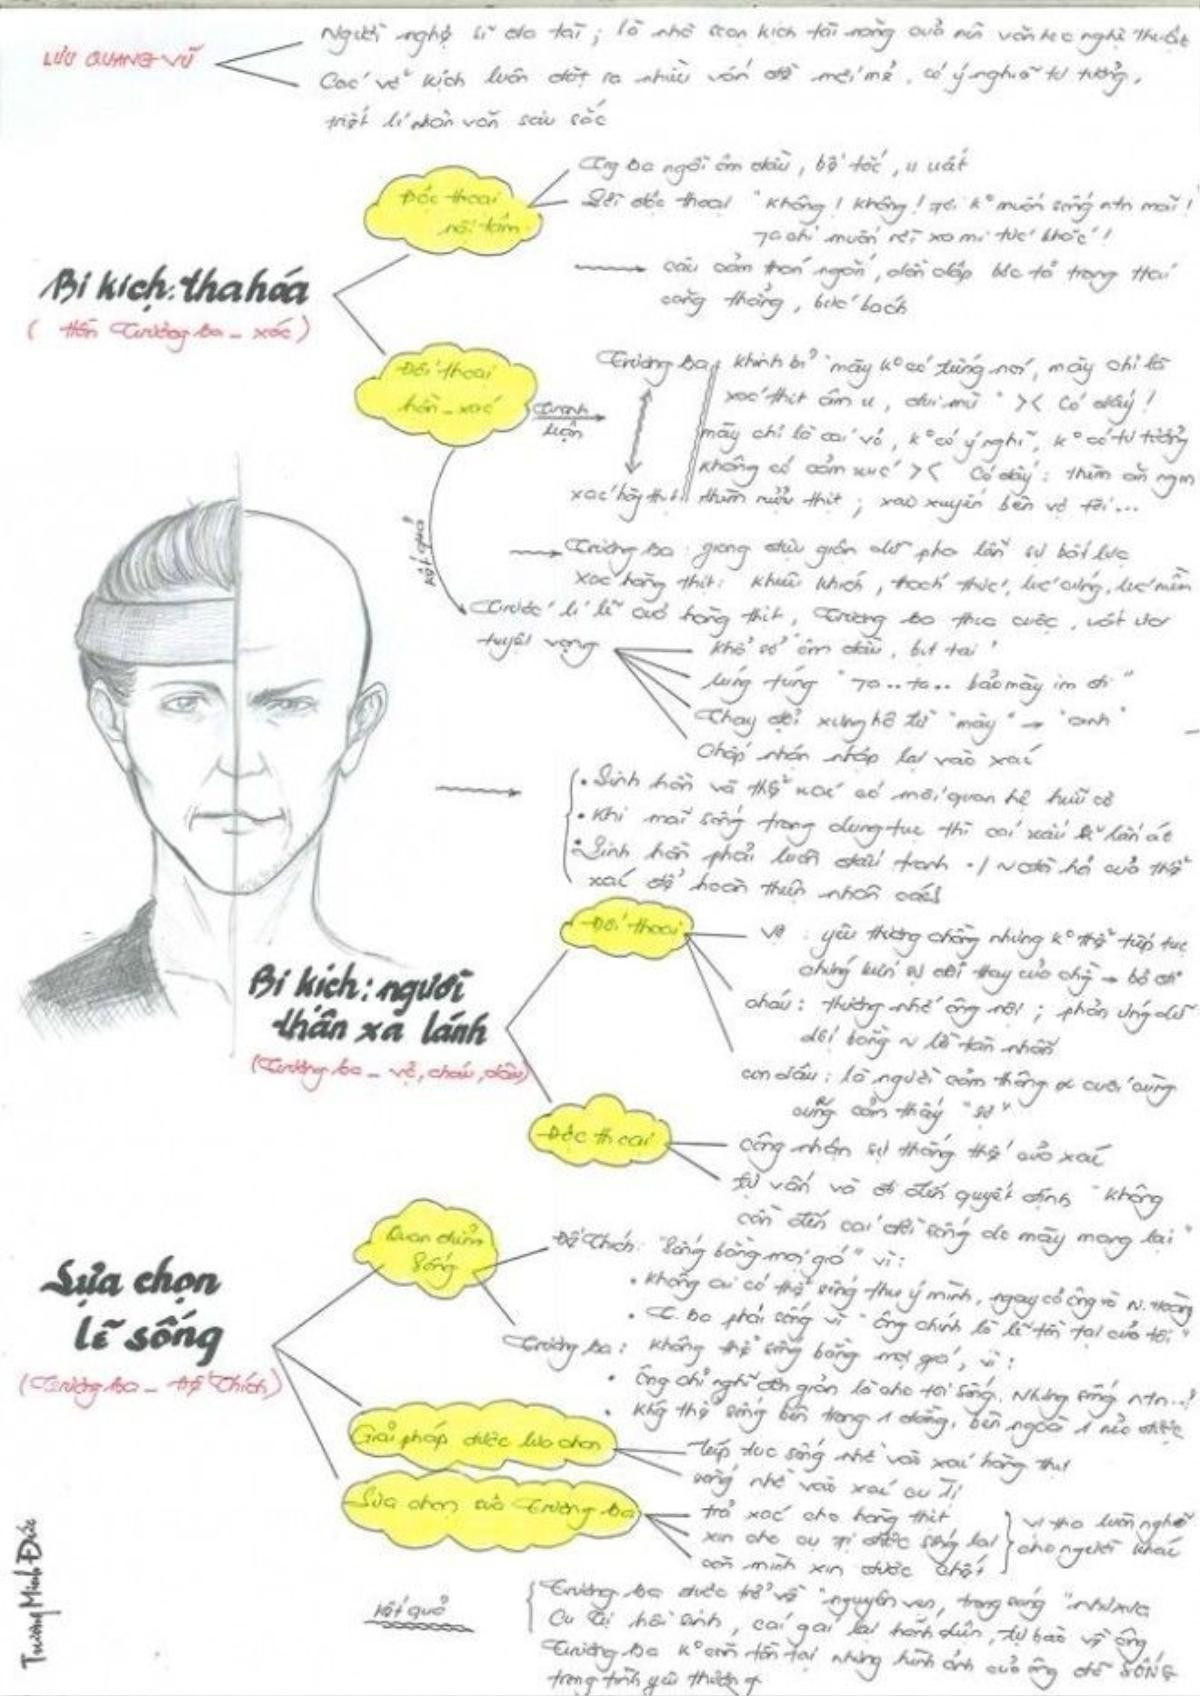 LƯU QUANG VŨ
Người nghệ sĩ đa tài; là nhà soạn kịch tài năng của nền văn học nghệ thuật
Các vở kịch luôn đặt ra nhiều vấn đề mới mẻ, có ý nghĩa tư tưởng,
triết lí nhân văn sâu sắc
Bi kịch: tha hóa
( Hồn Trương Ba _ xác)
Độc thoại
nội tâm
ngồi ôm đầu, bế tắc, u uất
Lời độc thoại "Không! Không! Tôi k° muốn sống ntn mãi!
Ta chỉ muốn rời xa mi tức khắc"!
câu cảm thán ngắn, dồn dập bộc tả trạng thái
căng thẳng, bức bách
Đối thoại
hồn _ xác
Tranh
luận
Trương Ba khinh bỉ "mày k° có tiếng nói, mày chỉ là
xác thịt âm u, đui mù" >< Có đấy!
mày chỉ là cái vỏ, k° có ý nghĩ, k° có tư tưởng
không có cảm xúc >< Có đấy: thèm ăn ngon
xác hàng thịt thèm rượu thịt; xao xuyến bên vợ tôi...
kết quả
Trương Ba: giọng dịu giận dữ pha lẫn sự bất lực
xác hàng thịt: khiêu khích, thách thức, lúc cứng, lúc mềm
Trước lí lẽ của hàng thịt, Trương Ba thua cuộc,
tuyệt vọng
khổ sở "ôm đầu, bịt tai"
lúng túng "Ta.. ta.. bảo mày im đi"
Thay đổi xưng hô từ "mày" → "anh"
Chấp nhận nhập lại vào xác
• Linh hồn và thể xác có mối quan hệ hữu cơ
• Khi mãi sống trong dung tục thì cái xấu sẽ lấn át
• Linh hồn phải luôn đấu tranh ./ ~ đòi hỏi của thể
xác để hoàn thiện nhân cách
Bi kịch: người
thân xa lánh
(Trương Ba _ vợ, cháu, dâu)
Đối thoại
Vợ : yêu thương chồng nhưng k° thể tiếp tục
chứng kiến sự đổi thay của chg → bỏ đi
cháu: thương nhớ ông nội; phản ứng dữ
dội bằng ~ lời tàn nhẫn
con dâu: là người cảm thông cuối cùng
cũng cảm thấy "sợ"
Độc thoại
công nhận sự thắng thế của xác
tự vấn và đi đến quyết định "không
cần đến cái đời sống do mày mang lại"
Lựa chọn
lẽ sống
(Trương Ba _ Đế Thích)
Quan điểm
sống
Đế Thích: "Sống bằng mọi giá" vì:
• Không ai có thể sống theo ý mình, ngay cả ông và N. Hoàng
• T. Ba phải sống vì "ông chính là lẽ tồn tại của tôi"
Trương Ba: không thể sống bằng mọi giá, vì:
• Ông chỉ nghĩ đơn giản là cho tôi sống. Nhưng sống ntn...!
• Khg thể sống bên trong 1 đằng, bên ngoài 1 nẻo được
Giải pháp được lựa chọn
tiếp tục sống nhờ vào xác hàng thịt
sống nhờ vào xác cu Tị
Lựa chọn của Trương Ba
trả xác cho hàng thịt
xin cho cu Tị được sống lại
còn mình xin được chết
vị tha luôn nghĩ
cho người khác
kết quả
Trương Ba được trở về "nguyên vẹn, trong sáng" như xưa
Cu Tị hồi sinh, cái gái lại
Trương Ba k° còn tồn tại nhưng hình ảnh của ông để SỐNG
trong tình yêu thương
Trương Minh Đức